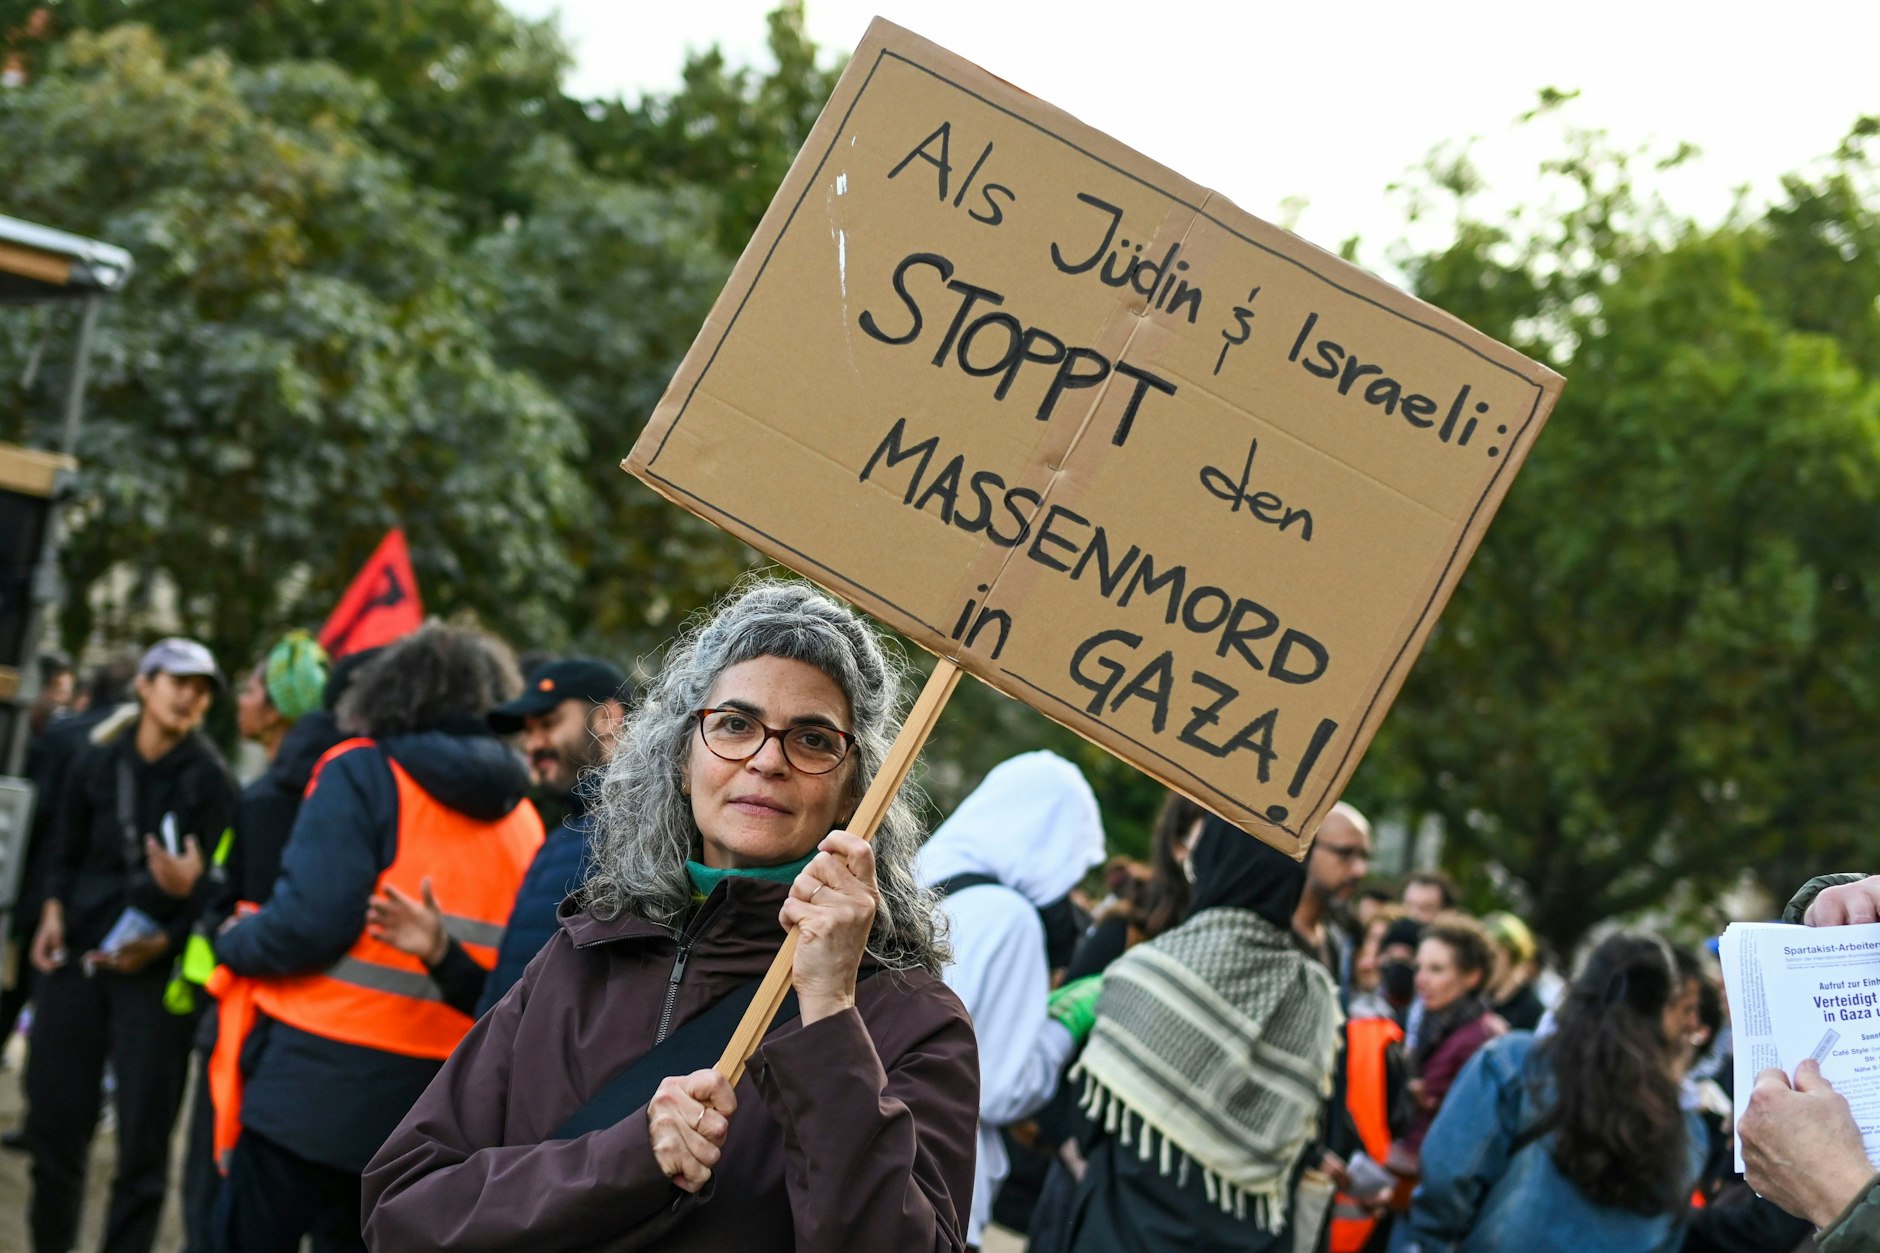 Als Jüdin & Israeli:
STOPPT den
MASSENMORD
in GAZA!
Spartakist-Arbeiter
Aufruf zur Einh
Verteidigt
in Gaza u
Sonn
Café Style
Str.
Nähe S-